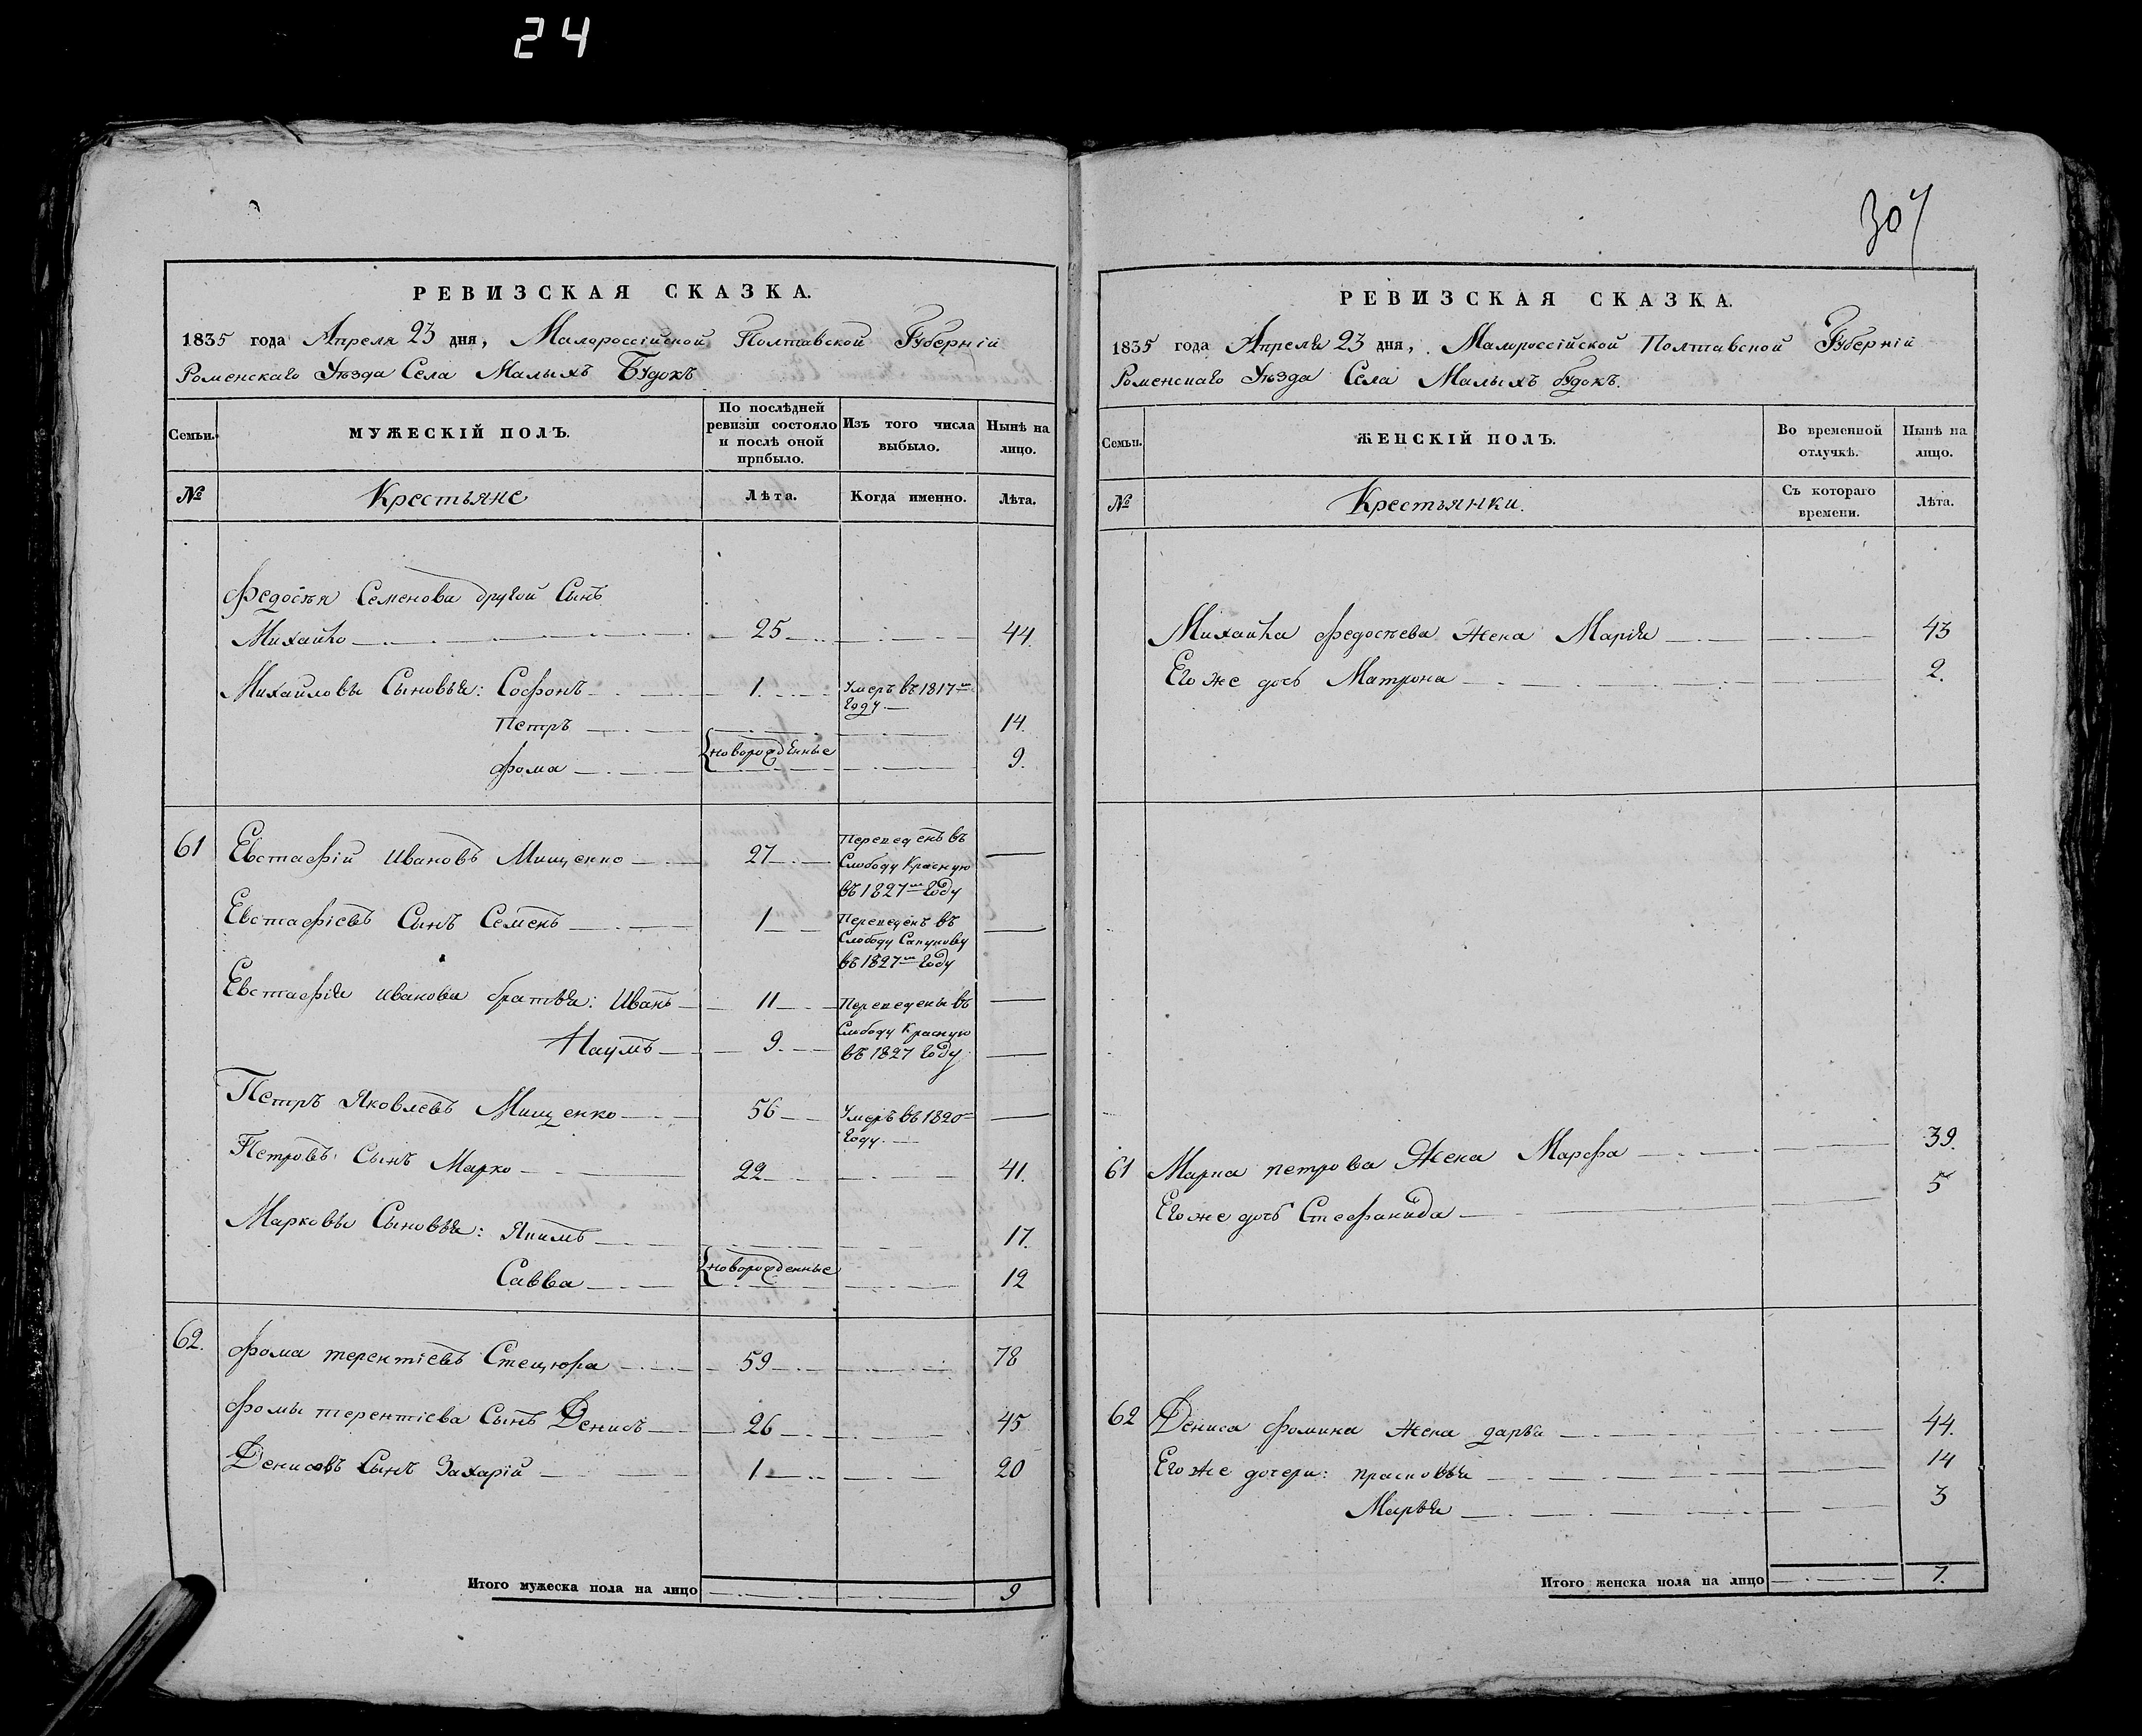 24
РЕВИЗСКАЯ СКАЗКА.
1835 года Апреля 23 дня, Малороссійской Полтавской Губерніи
Роменскаго Уѣзда Села Малыхъ Будокъ
Семьи.
МУЖЕСКІЙ ПОЛЪ.
По послѣдней ревизіи состояло и послѣ оной прибыло.
Изъ того числа выбыло.
Нынѣ на лицо.
№
Крестьяне
Лѣта.
Когда именно.
Лѣта.
Федосѣя Семенова другой Сынъ
Михайло 25 44.
Михайловы Сыновья: Софонъ 1. Умеръ въ 1817м Году.
Петръ 14.
новорожденные
Фома 9.
61 Евстафій Ивановъ Мищенко 27 Переведенъ въ Слободу Красную въ 1827м Году
Евстафіевъ Сынъ Семенъ 1 Переведенъ въ Слободу Сапунову въ 1827м Году
Евстафія Иванова братья: Иванъ 11 Переведены въ Слободу Красную въ 1827 Году
Наумъ 9.
Петръ Яковлевъ Мищенко 56 Умеръ въ 1820 Году.
Петровъ Сынъ Марко 22 41.
Марковы Сыновья: Якимъ 17.
новорожденные
Савва 12
62. Фома терентіевъ Стецюра 59 78
Фомы терентіева Сынъ Денисъ 26 45
Денисовъ Сынъ Захарій 1 20
Итого мужеска пола на лицо 9
307
РЕВИЗСКАЯ СКАЗКА.
1835 года Апреля 23 дня, Малороссійской Полтавской Губерніи
Роменскаго Уѣзда Села Малыхъ будокъ.
Семьи.
ЖЕНСКІЙ ПОЛЪ.
Во временной отлучкѣ.
Нынѣ на лицо.
№
Крестьянки.
Съ котораго времени.
Лѣта.
Михайла Федосѣева Жена Марія 43
Его же дочь Матрона 2.
61 Марка петрова Жена Марфа 39.
Его же дочь Стефанида 5
62 Дениса Фомина Жена дарья 44.
Его же дочери: прасковья 14
Марья 3
Итого женска пола на лицо 7.